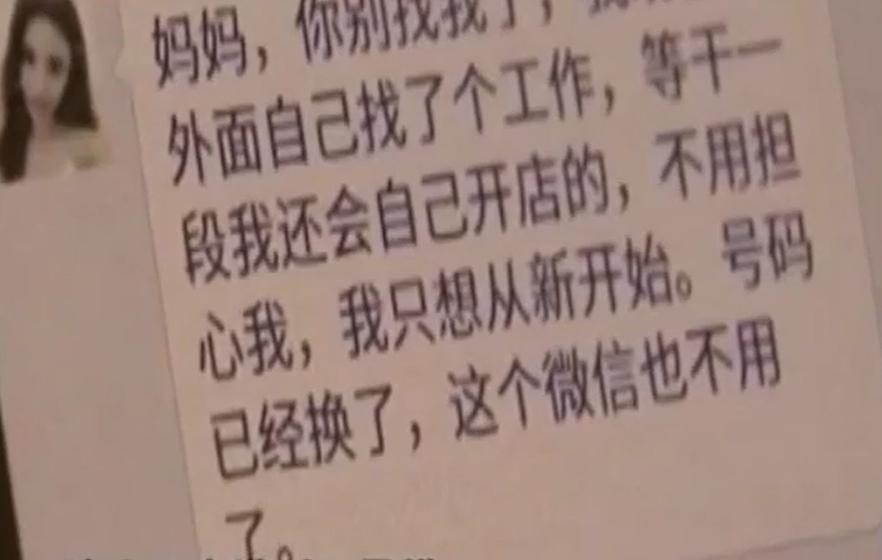 妈妈，你别找我了，
外面自己找了个工作，等干一
段我还会自己开店的，不用担
心我，我只想从新开始。号码
已经换了，这个微信也不用
了。